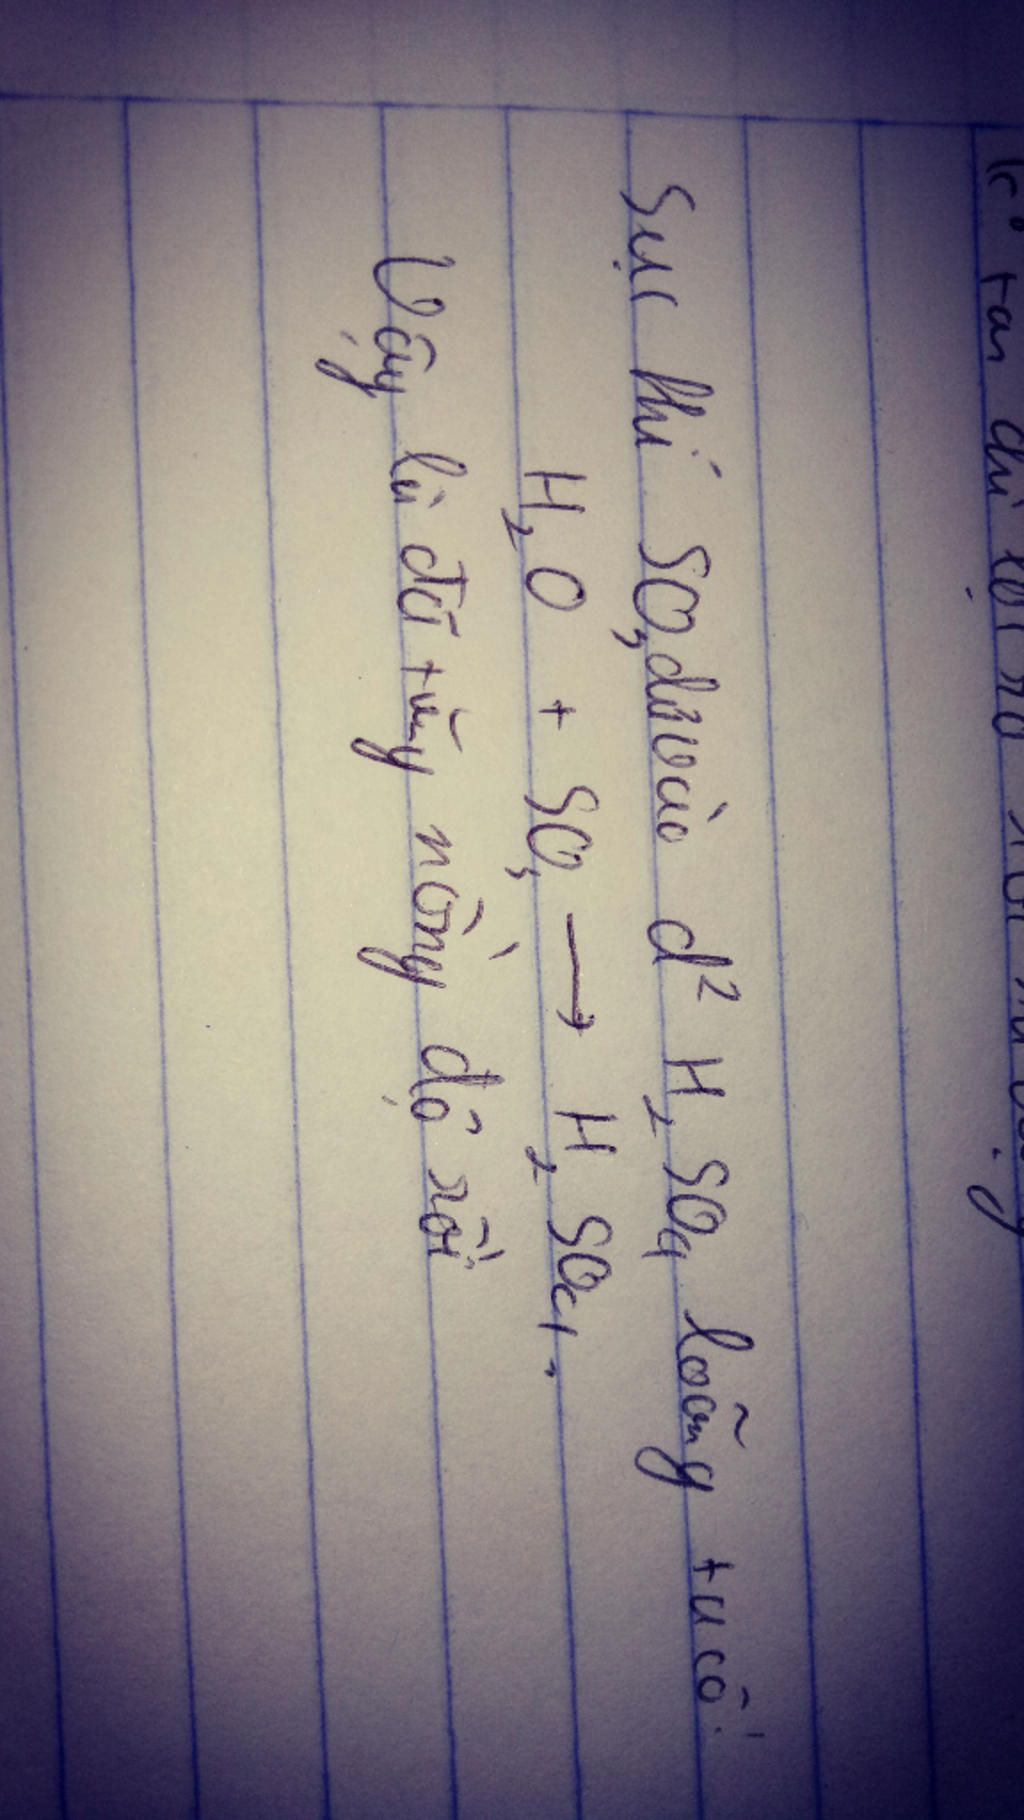 tan chỉ lọc ra
Sục khí SO3 dư vào d² H2SO4 loãng ta có
H2O + SO3 → H2SO4.
Vậy là đã tăng nồng độ rồi